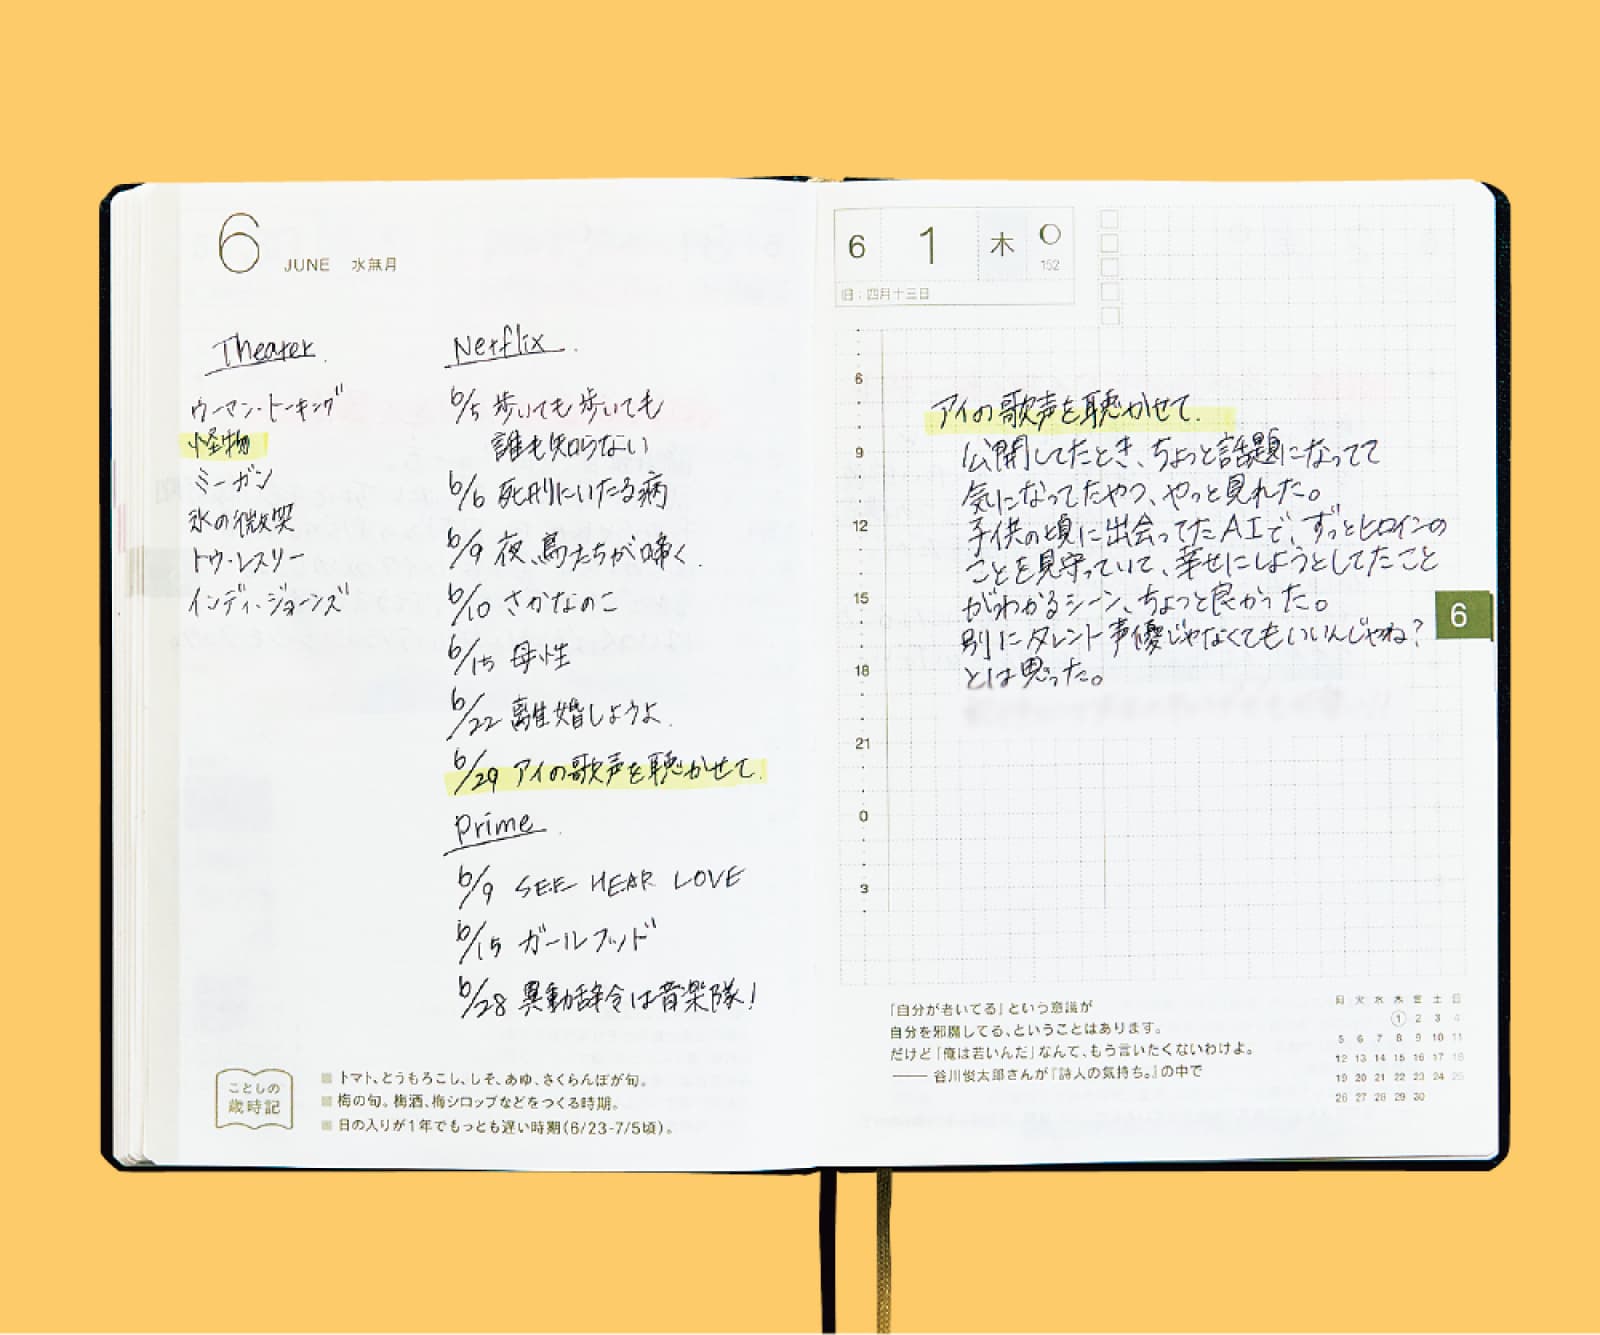 6 JUNE 水無月
Theater.
ウーマン・トーキング
怪物
ミーガン
氷の微笑
トゥ・レスリー
インディ・ジョーンズ
Netflix.
6/5 歩いても歩いても
誰も知らない
6/6 死刑にいたる病
6/9 夜、鳥たちが啼く.
6/10 さかなのこ
6/15 母性
6/22 離婚しようよ.
6/29 アイの歌声を聴かせて.
prime.
6/9 SEE HEAR LOVE
6/15 ガールフッド
6/28 異動辞令は音楽隊!
ことしの
歳時記
トマト、とうもろこし、しそ、あゆ、さくらんぼが旬。
梅の旬。梅酒、梅シロップなどをつくる時期。
日の入りが1年でもっとも遅い時期(6/23-7/5頃)。
6 1 木
152
旧:四月十三日
6
9
12
15
18
21
0
3
アイの歌声を聴かせて.
公開してたとき、ちょっと話題になってて
気になってたやつ、やっと見れた。
子供の頃に出会ってたAIで、ずっとヒロインの
ことを見守っていて、幸せにしようとしてたこと
がわかるシーン、ちょっと良かった。
別にタレント声優じゃなくてもいいんじゃね?
とは思った。
6
「自分が老いてる」という意識が
自分を邪魔してる、ということはあります。
だけど「俺は若いんだ」なんて、もう言いたくないわけよ。
—— 谷川俊太郎さんが『詩人の気持ち。』の中で
月 火 水 木 金 土 日
1 2 3 4
5 6 7 8 9 10 11
12 13 14 15 16 17 18
19 20 21 22 23 24 25
26 27 28 29 30